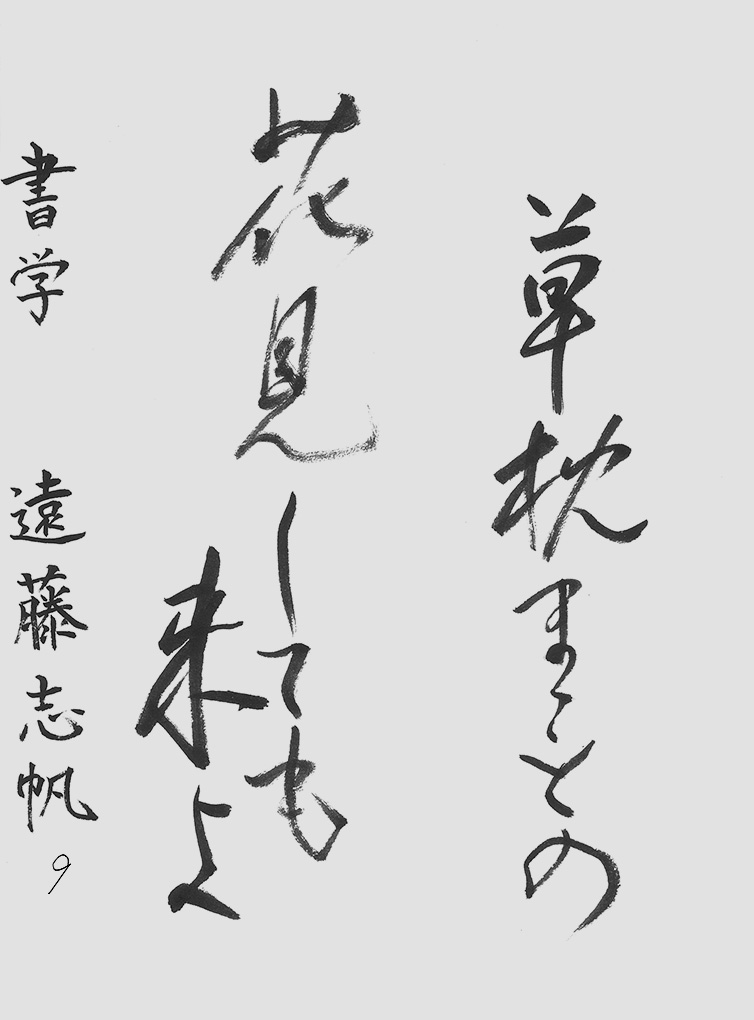 草枕まことの
花見しても
来よ
書学 遠藤志帆
9